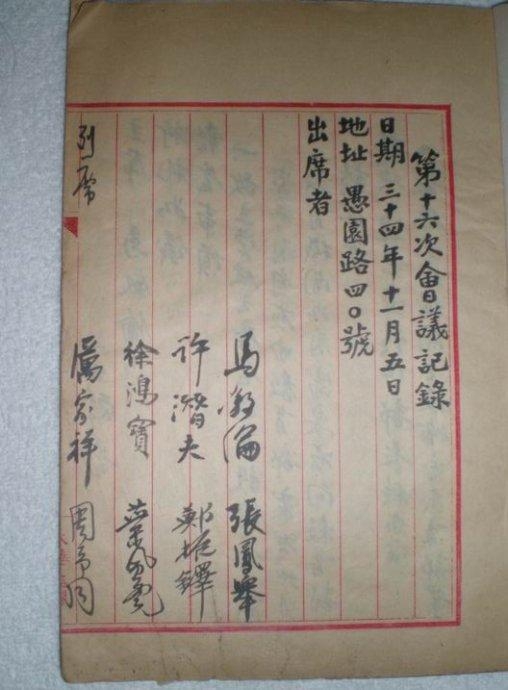 第十六次會議記錄
日期 三十四年十一月五日
地址 愚園路四〇號
出席者
馬敘倫 張鳳舉
許潛夫 鄭振鐸
徐鴻寶 葉風虎
列席 厲家祥 周予同